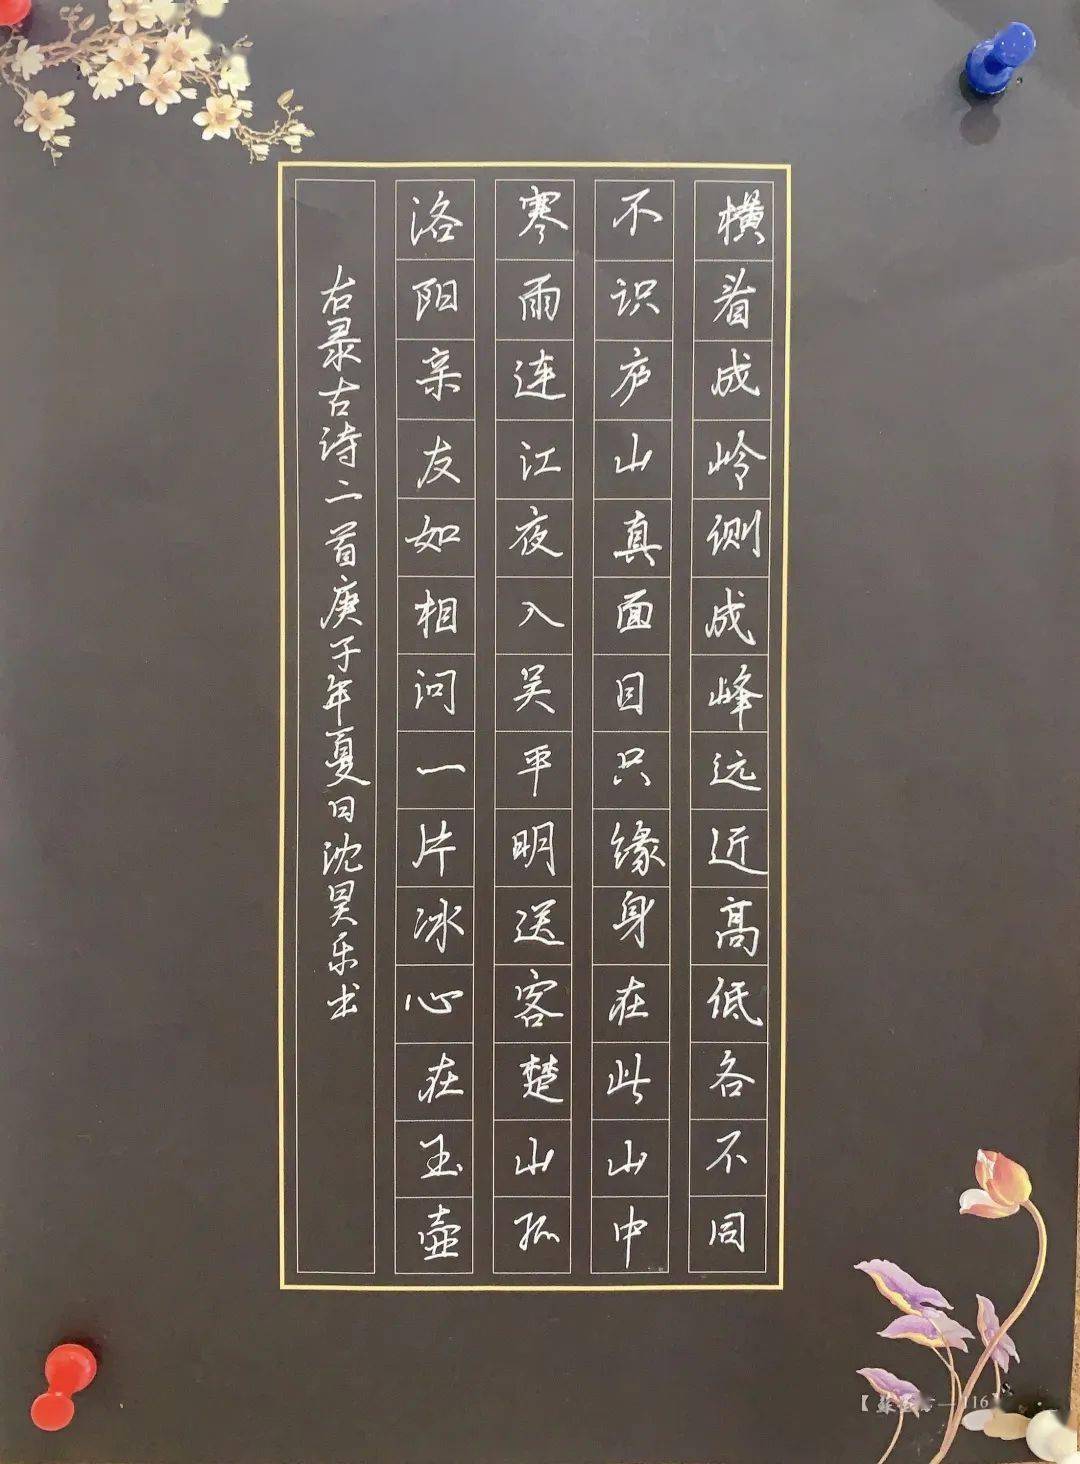 横看成岭侧成峰远近高低各不同
不识庐山真面目只缘身在此山中
寒雨连江夜入吴平明送客楚山孤
洛阳亲友如相问一片冰心在玉壶
右录古诗二首庚子年夏日沈昊乐书